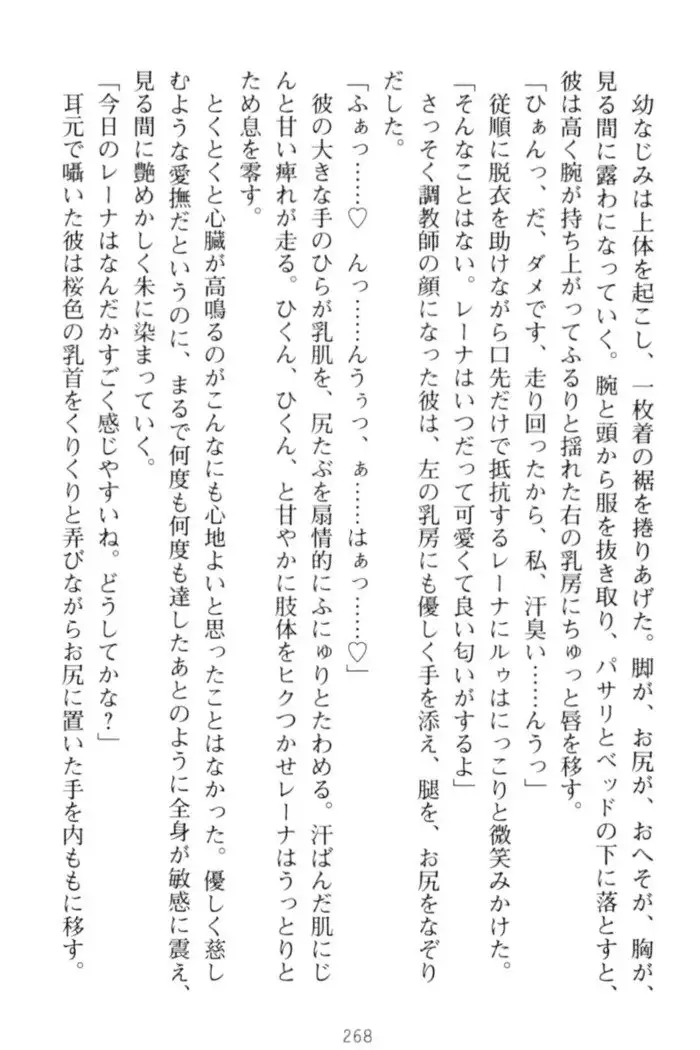 幼なじみは上体を起こし、一枚着の裾を捲りあげた。脚が、お尻が、おへそが、胸が、
見る間に露わになっていく。腕と頭から服を抜き取り、パサリとベッドの下に落とすと、
彼は高く腕が持ち上がってふるりと揺れた右の乳房にちゅっと唇を移す。
「ひぁんっ、だ、ダメです、走り回ったから、私、汗臭い……んうっ」
従順に脱衣を助けながら口先だけで抵抗するレーナにルゥはにっこりと微笑みかけた。
「そんなことはない。レーナはいつだって可愛くて良い匂いがするよ」
さっそく調教師の顔になった彼は、左の乳房にも優しく手を添え、腿を、お尻をなぞり
だした。
「ふぁっ……♡　んっ……んうぅっ、ぁ……はぁっ……♡」
彼の大きな手のひらが乳肌を、尻たぶを扇情的にふにゅりとたわめる。汗ばんだ肌にじ
んと甘い痺れが走る。ひくん、ひくん、と甘やかに肢体をヒクつかせレーナはうっとりと
ため息を零す。
とくとくと心臓が高鳴るのがこんなにも心地よいと思ったことはなかった。優しく慈し
むような愛撫だというのに、まるで何度も何度も達したあとのように全身が敏感に震え、
見る間に艶めかしく朱に染まっていく。
「今日のレーナはなんだかすごく感じやすいね。どうしてかな？」
耳元で囁いた彼は桜色の乳首をくりくりと弄びながらお尻に置いた手を内ももに移す。
268